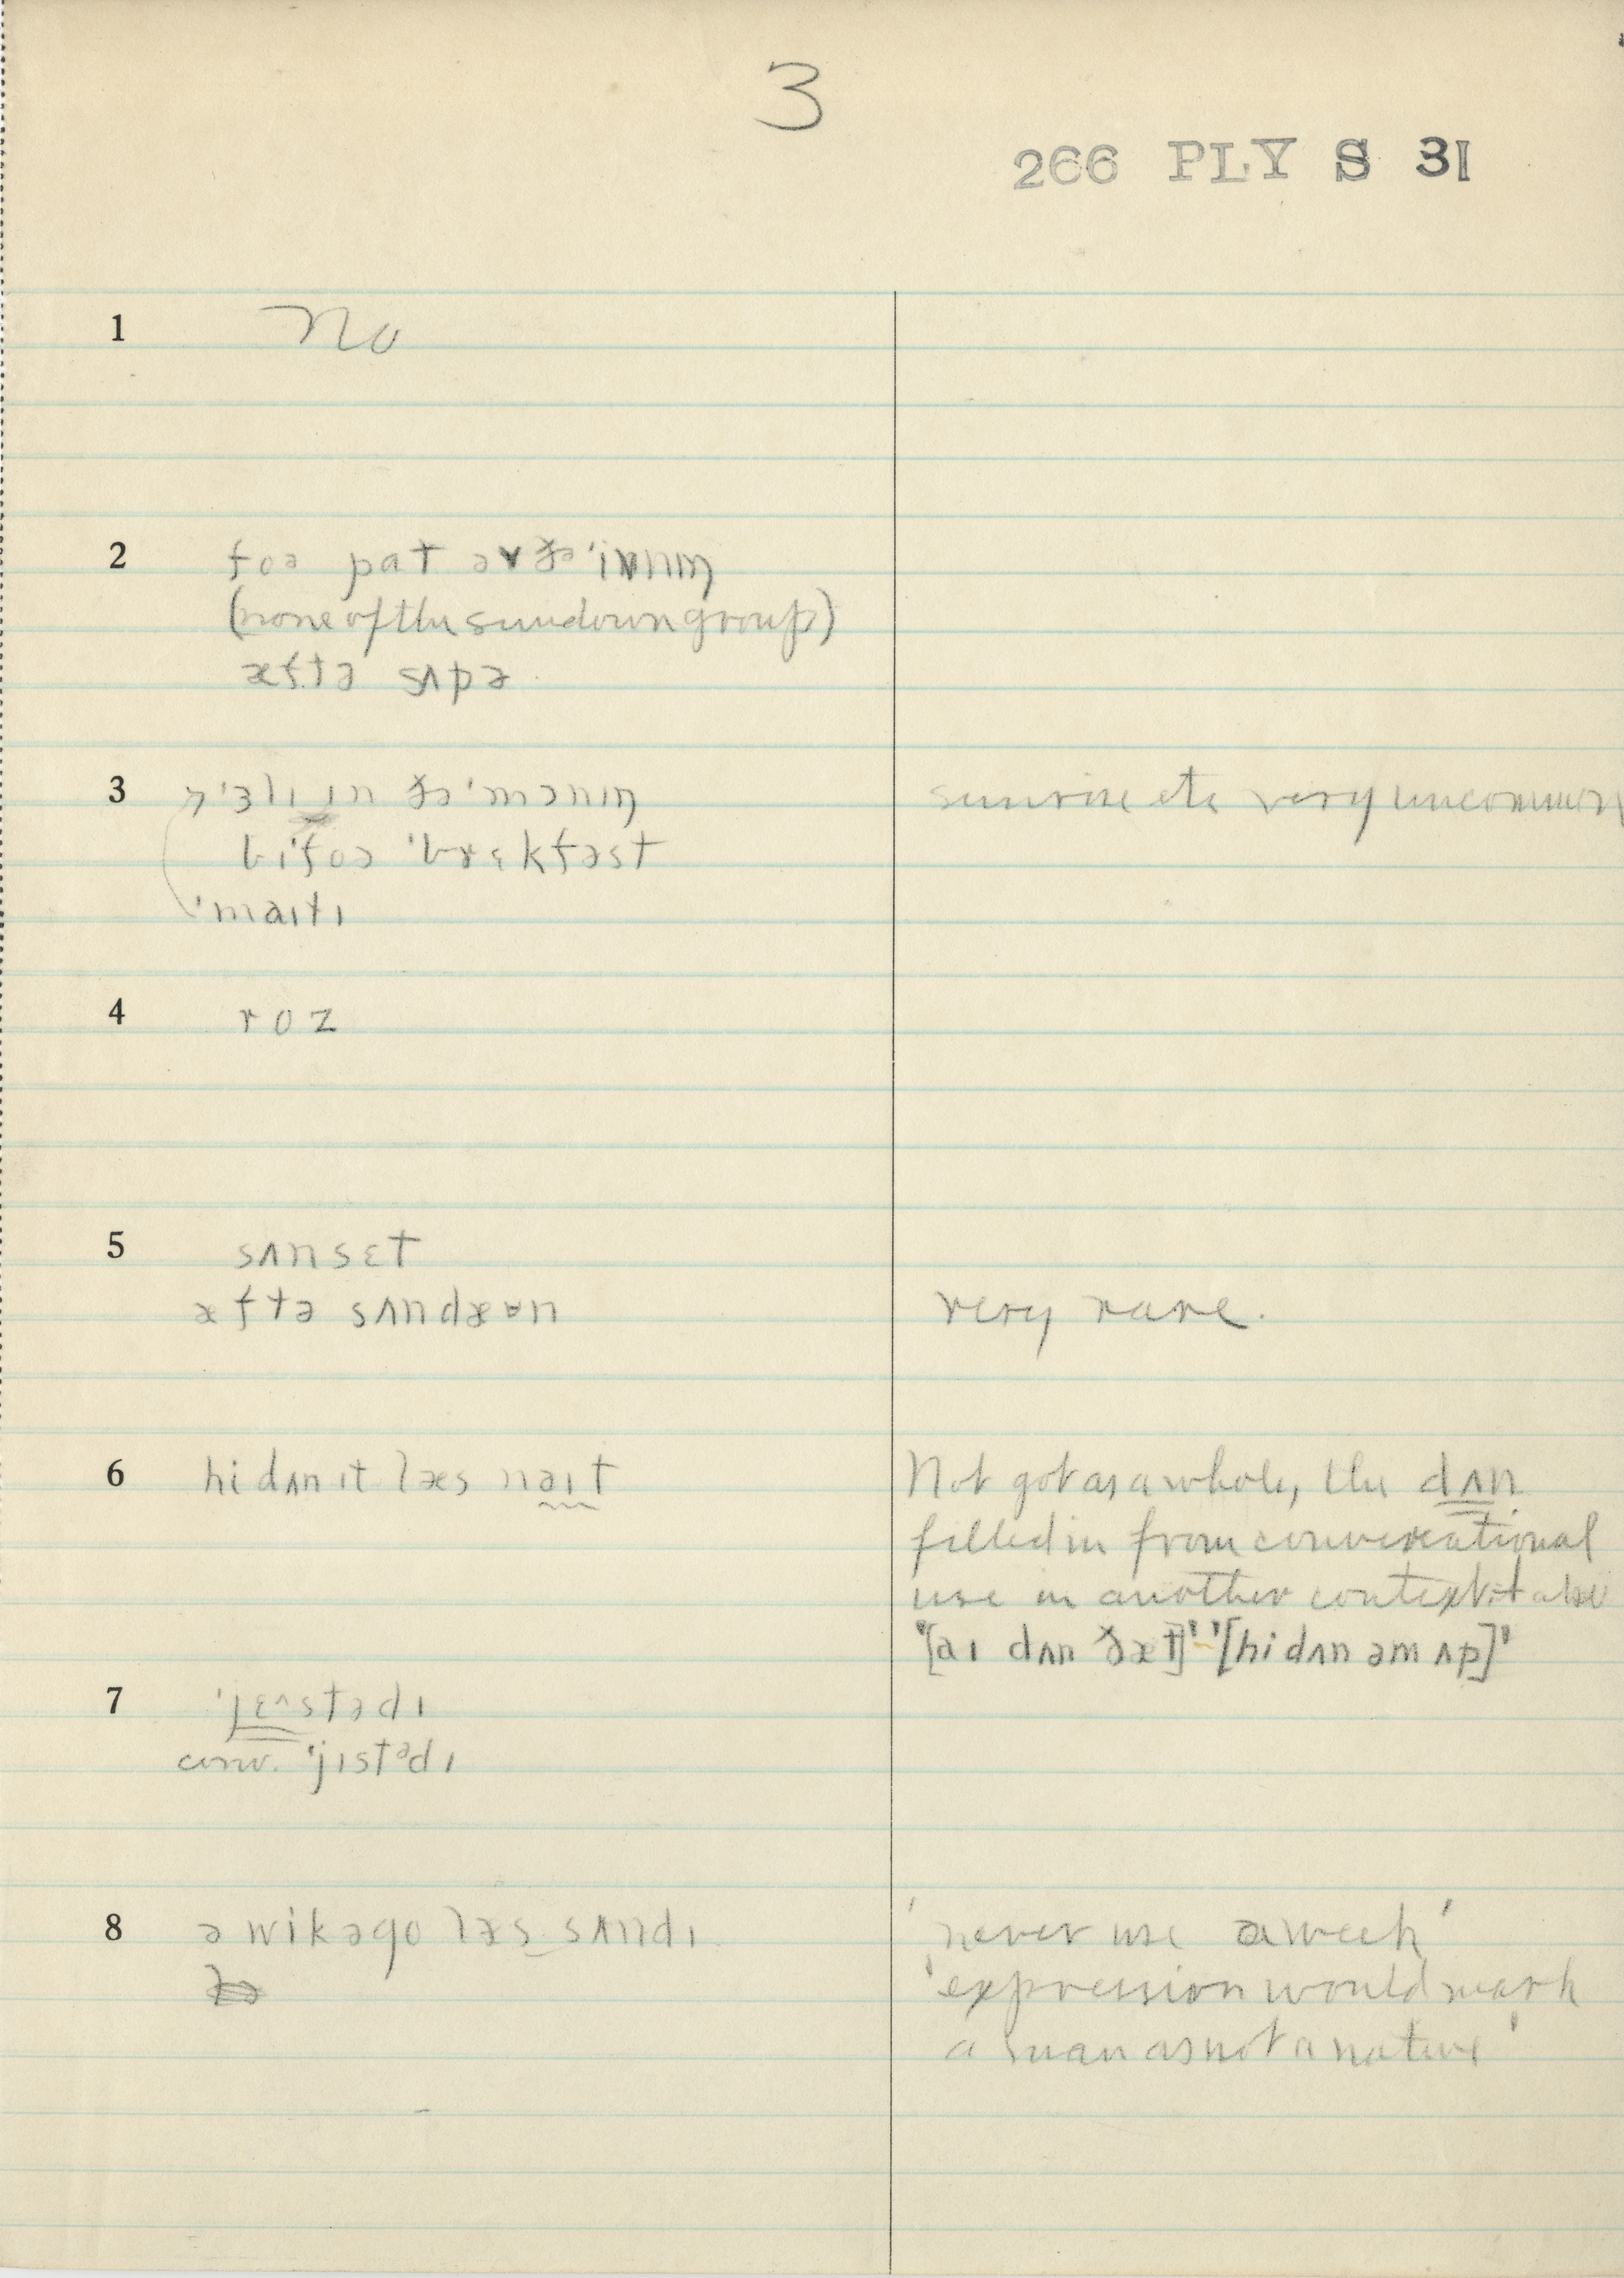 3
266 PLY S 31
1 No
2 foə pat əv ðə 'ivnɪŋ
(none of the sundown group)
æftə sʌpə
3 'ɜlɪ ɪn ðə 'mɔnɪŋ sunrise etc very uncommon
bi'foə 'brɛkfəst
'maɪtɪ
4 roz
5 sʌnsɛt
æftə sʌndæʊn very rare.
6 hi dʌn ɪt læs naɪt Not got as a whole, the dʌn
filled in from conversational
use in another context
'[aɪ dʌn ðæt]' '[hi dʌn əm ʌp]'
7 'jɛ^stədɪ
conv. 'jɪstədɪ
8 ə wik əgo læs sʌndɪ 'never use a week'
'expression would mark
a man as not a native'